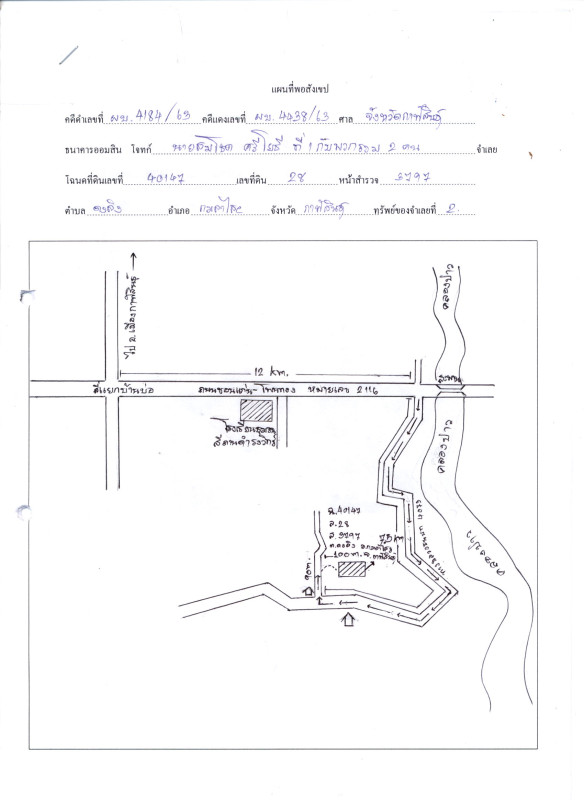 แผนที่พอสังเขป
คดีดำเลขที่ ผบ.4184/63 คดีแดงเลขที่ ผบ.4438/63 ศาล จังหวัดกาฬสินธุ์
ธนาคารออมสิน โจทก์ นายสมโชค ศรีโยธี ที่ 1 กับพวกรวม 2 คน จำเลย
โฉนดที่ดินเลขที่ 40147 เลขที่ดิน 28 หน้าสำรวจ 3797
ตำบล ดงลิง อำเภอ กมลาไสย จังหวัด กาฬสินธุ์ ทรัพย์ของจำเลยที่ 2
ไป อ.เมืองกาฬสินธุ์
คลองปาว
12 km.
สะพาน
สี่แยกบ้านบ่อ
หมายเลข 2116
โรงเรียน
คลองปาว
คลองปาว
ฉ.40147
ล.28
ส.3797
ต.ดงลิง อ.กมลาไสย
จ.กาฬสินธุ์
7.5 km
100 ม.
90 ม.